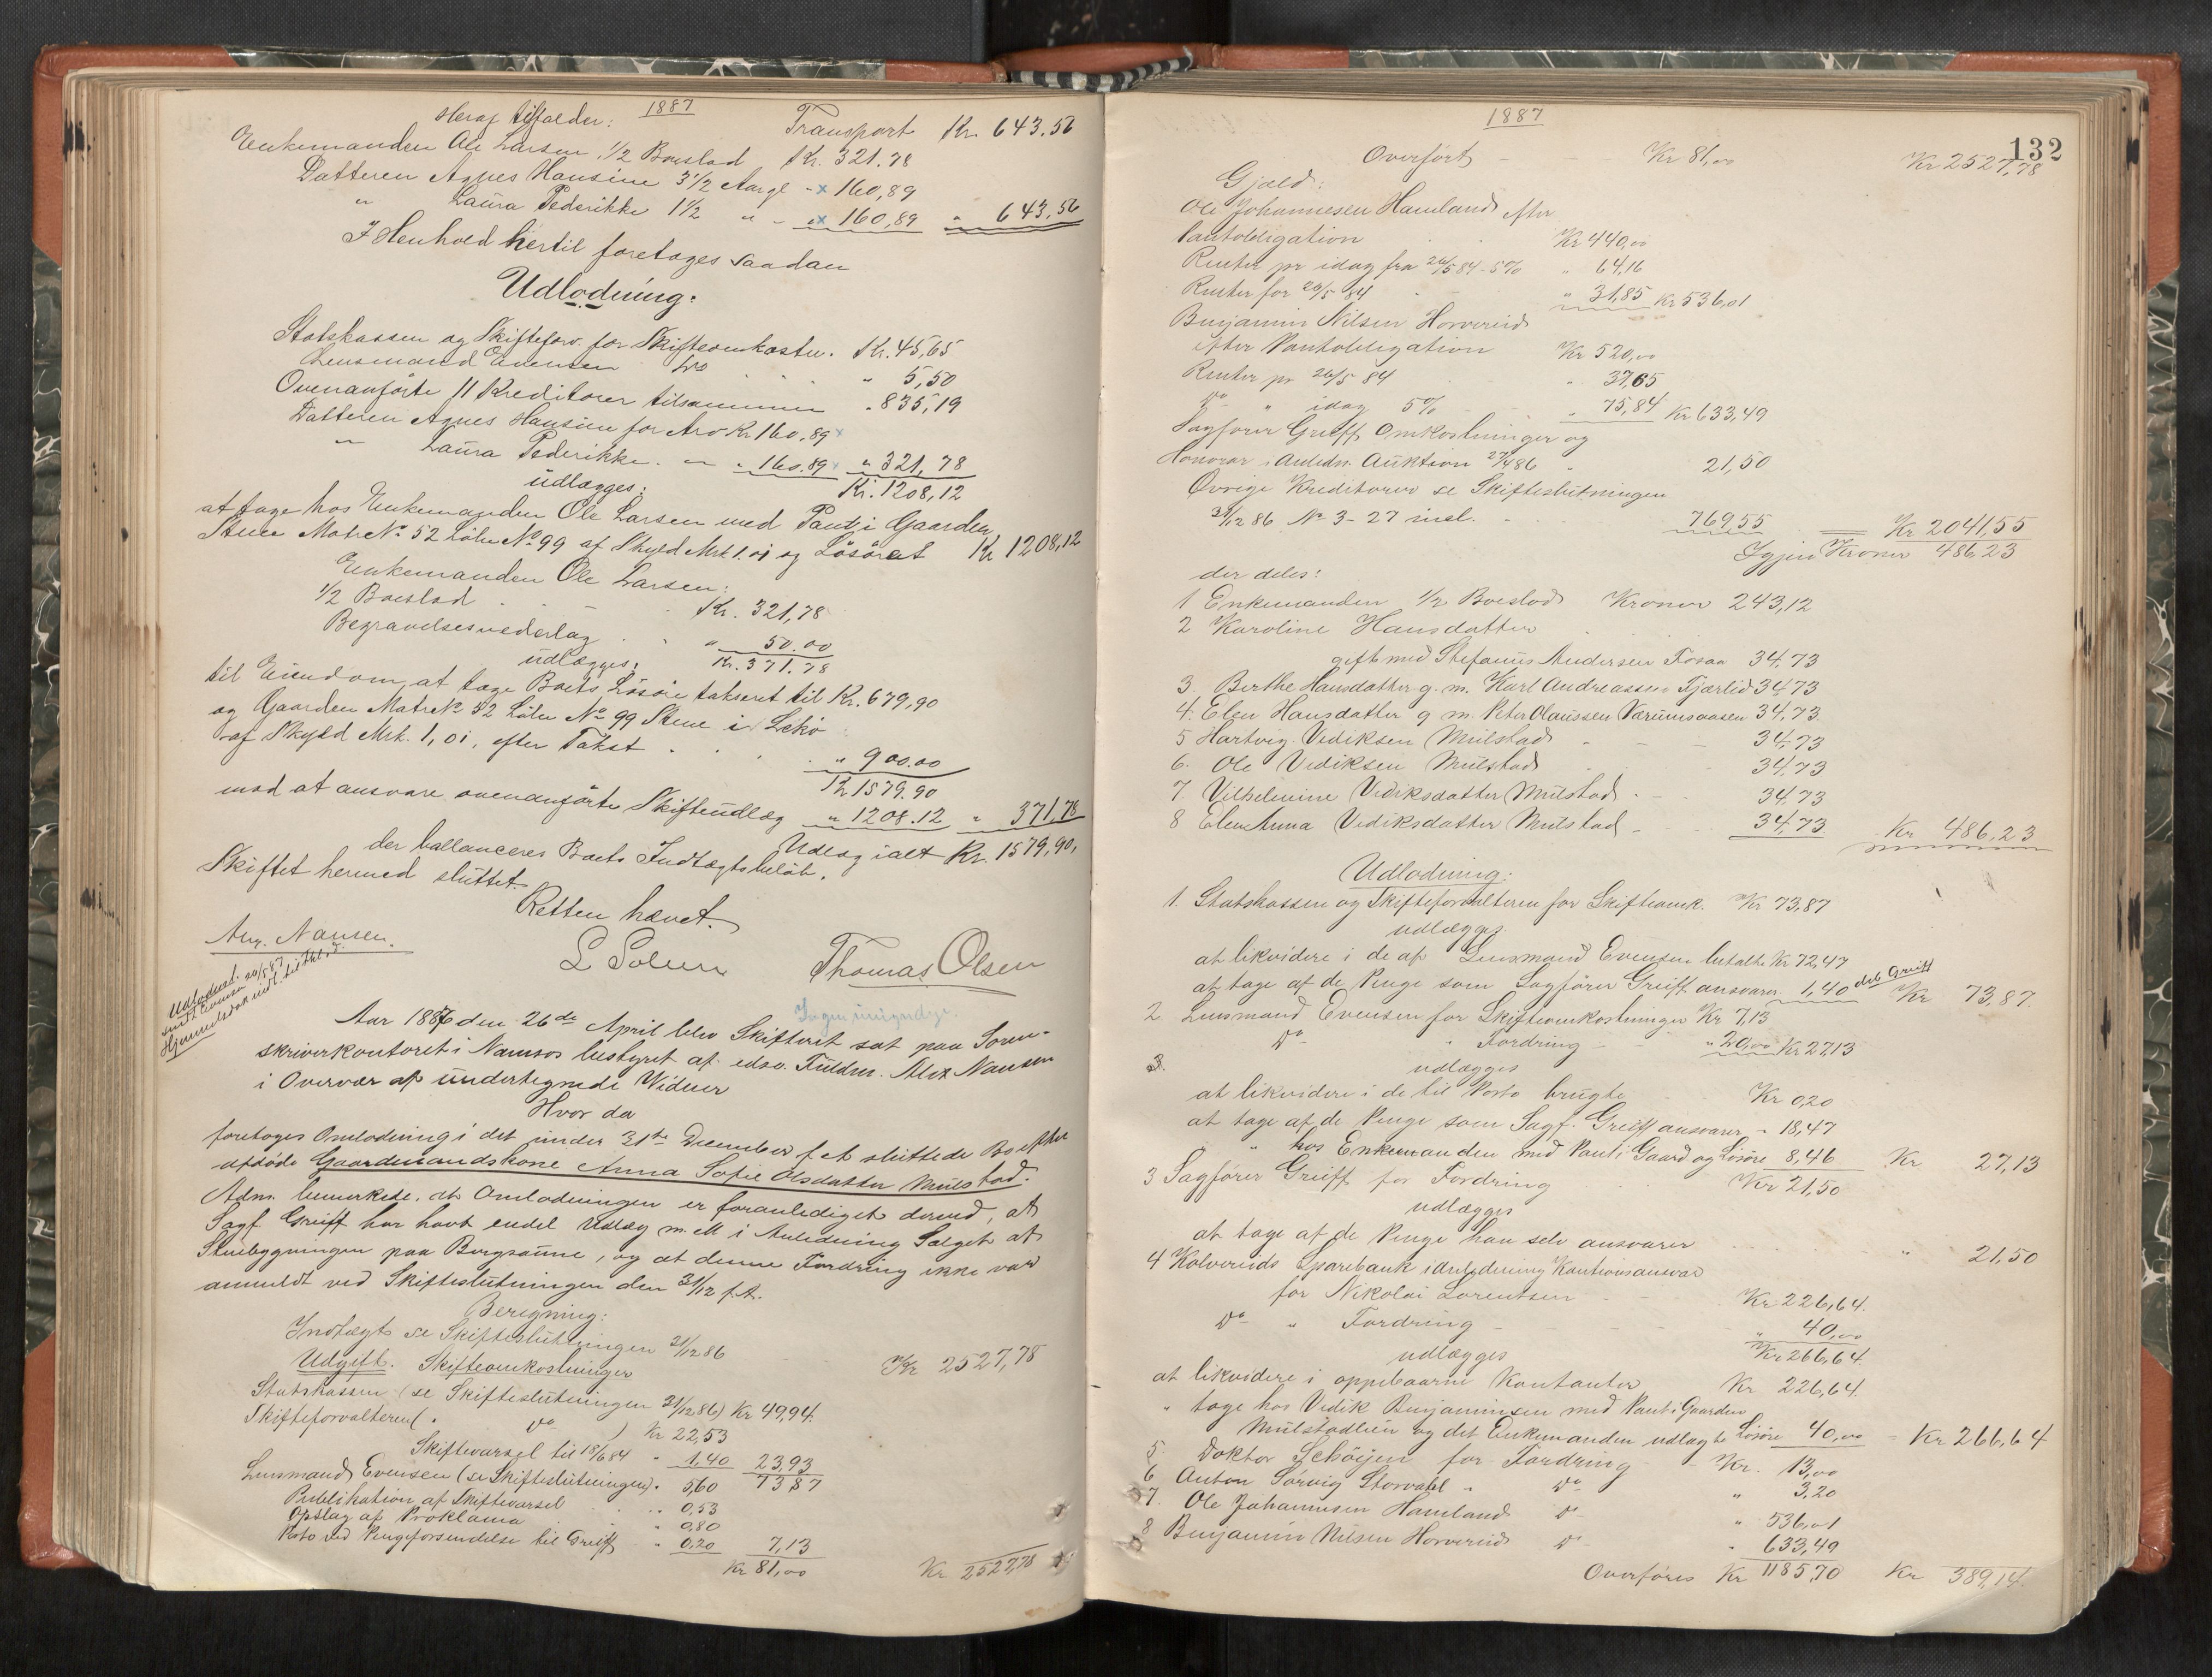 1887
Heraf tilfalder: Transport Kr. 643.56
Enkemanden Ole Larsen 1/2 Boeslod Kr. 321.78
Datteren Agnes Hansine 3 1/2 Aargl - x 160,89
" Laura Pederikke 1 1/2 " - " x 160,89 " 643,56
I Henhold hertil foretages saadan
Udlodning:
Statskassen og Skifteforv. for Skifteomkostn. Kr. 45,65
Lensmand Evensen Do " 5,50
Ovenanførte 11 Kreditorer tilsammen " 835,19
Datteren Agnes Hansine for Arv Kr 160,89 x
" Laura Pederikke. " " 160.89 x " 321,78
udlægges: Kr. 1208,12
at tage hos Enkemanden Ole Larsen med Pant i Gaarden
Stene Matr No 52 Löbe No 99 af Skyld Mrk 1.01 og Lösöret Kr 1208,12
Enkemanden Ole Larsen:
1/2 Boeslod Kr. 321,78
Begravelsesvederlag " 50.00
udlægges: Kr. 371.78
til Eiendom, at tage Boets Løsøre takseret til Kr. 679,90
og Gaarden Matr No 52 Löbe No 99 Stene i Lekö
af Skyld Mrk. 1,01, efter Takst " 900.00
Kr 1579.90
mod at ansvare ovenanførte Skifteudlæg " 1208.12 " 371,78
Udlæg ialt Kr. 1579,90,
der ballanceres Boets Indtægtsbeløb.
Skiftet hermed sluttet.
Retten hævet.
Aug. Nansen.
L Solem Thomas Olsen
Udloddet
Aar 1887 den 26de April blev Skifteret sat paa Soren-
skriverkontoret i Namsos bestyret af edsv. Fuldm. Alex Nansen
i Overvær af undertegnede Vidner
Hvor da
foretoges Omlodning i det under 31te December f. A sluttede Bo efter
afdøde Gaardmandskone Anna Sofie Olsdatter Mulstad.
Adm. bemærkede, at Omlodningen er foranlediget derved, at
Sagf. Greiff har havt endel Udlæg m. M i Anledning Salget at
Stuebygningen paa Bergsaune, og at denne Fordring ikke var
anmeldt ved Skifteslutningen den 31/12 f. A.
Beregning:
Indtægt se Skifteslutningen 31/12 86 Kr 2527,78
Udgift. Skifteomkostninger
Statskassen (se Skifteslutningen 31/12 86) Kr 49,94.
Skifteforvalteren ( " Do ) Kr 22,53
Skiftevarsel til 18/6 84 " 1,40 23,93
73,87
Lensmand Evensen (se Skifteslutningen) " 5,60
Publikation af Skiftevarsel " 0,53
Opslag af Proklama " 0,80
Porto ved Pengeforsendelse til Greiff " 0,20 7,13
Kr 81,00 Kr 2527,78
1887
132
Overført - - Kr 81,00 Kr 2527,78
Gjæld:
Ole Johannesen Hamland efter
Pantobligation Kr 440,00
Renter pr idag fra 26/5 84 5% " 64,16
Renter for 26/5 84 " 31,85 Kr 536,01
Benjamin Nilsen Horvereid
efter Pantobligation Kr 520,00
Renter pr 26/5 84 " 37,65
Do " idag 5% " 75,84 Kr 633,49
Sagfører Greiff, Omkostninger og
Honorar i Anledn. Auktion 27/4 86 " 21,50
Øvrige Kreditorer se Skifteslutningen
31/12 86 No 3 - 27 incl. 769,55 Kr 2041,55
Igjen Kroner 486,23
der deles:
1 Enkemanden 1/2 Boeslod Kroner 243,12
2 Karoline Hansdatter
gift med Stefanus Andersen Fosaa 34,73
3. Berthe Hansdatter g. m. Karl Andreassen Fjærlid 34,73
4. Elen Hansdatter g m. Peter Olaussen Værumsaasen 34,73
5 Hartvig Vediksen Mulstad - - 34,73
6. Ole Vediksen Mulstad 34,73
7. Vilhelmine Vediksdatter Mulstad - - 34,73
8 Elen Anna Vediksdatter Mulstad - 34,73. Kr 486,23
Udlodning:
1. Statskassen og Skifteforvalteren for Skifteomk. Kr 73,87
udlægges
at likvidere i de af Lensmand Evensen betalte Kr 72,47
at tage af de Penge som Sagfører Greiff ansvarer 1,40 Kr 73,87.
2. Lensmand Evensen for Skifteomkostninger Kr 7,13
Do " Fordring " 20,00 Kr 27,13
udlægges
at likvidere i de til Porto brugte Kr 0,20
at tage af de Penge som Sagf. Greiff ansvarer - 18,47
" hos Enkemanden med Pant i Gaard og Løsøre 8,46 Kr 27,13
3 Sagfører Greiff for Fordring Kr 21,50
udlægges
at tage af de Penge han selv ansvarer " 21,50
4 Kolvereids Sparebank i Anledning Kautionsansvar
for Nikolai Lorentsen Kr 226,64.
Do " Fordring " 40,00
udlægges Kr 266,64.
at likvidere i oppebaarne Kontanter Kr 226,64.
" tage hos Vedik Benjaminsen med Pant i Gaarden
Mulstadlien og det Enkemanden udlagte Løsøre 40,00 - Kr 266,64
5. Doktor Schöyen for Fordring - Kr. 13,00
6 Anton Sørvig Storvahl " Do " 3,20
7. Ole Johannesen Hamland Do " 536,01
8 Benjamin Nilsen Horvereid Do " 633,49
Overføres Kr 1185,70 Kr 389,14.